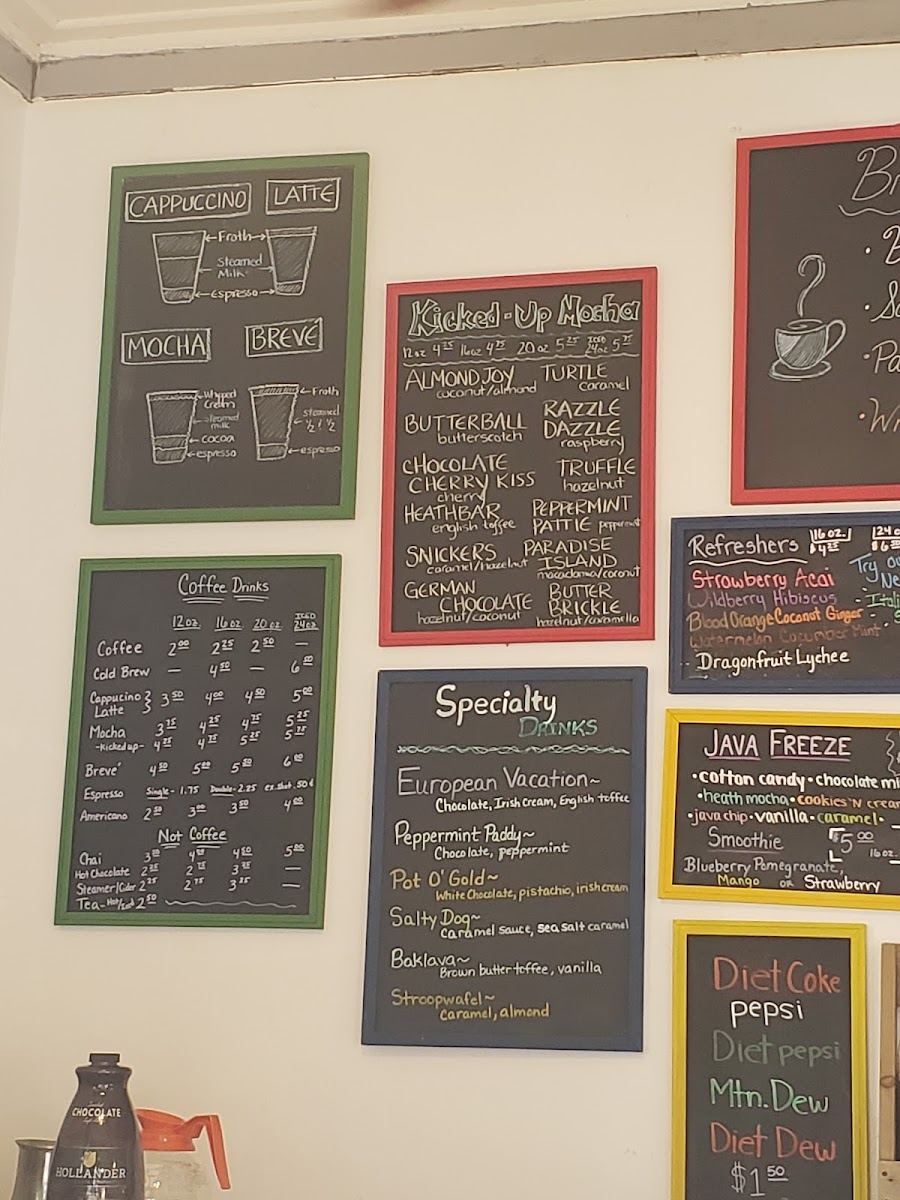 CAPPUCCINO LATTE
Froth
Steamed
Milk
espresso
MOCHA BREVÉ
Whipped
Cream
steamed
milk
cocoa
espresso
Froth
steamed
1/2 + 1/2
espresso
Coffee Drinks
12 oz. 16 oz 20 oz ICED 24 oz
Coffee 2.00 2.25 2.50 —
Cold Brew — 4.50 — 6.00
Cappucino 3.50 4.00 4.50 5.00
Latte
Mocha 3.75 4.25 4.75 5.25
-Kicked up- 4.25 4.75 5.25 5.75
Breve' 4.50 5.00 5.50 6.00
Espresso Single - 1.75 Double - 2.25 ex. shot .50¢
Americano 2.50 3.00 3.50 4.00
Not Coffee
Chai 4.50 5.00
Hot Chocolate 2.75
Steamer/Cider 2.25 2.75 3.25 —
Tea - Hot/Iced 2.50
Kicked-Up Mocha
12 oz 4.25 16 oz 4.75 20 oz 5.25 ICED 24 oz 5.75
ALMOND JOY
coconut/almond
TURTLE
caramel
BUTTERBALL
butterscotch
RAZZLE
DAZZLE
raspberry
CHOCOLATE
CHERRY KISS
cherry
TRUFFLE
hazelnut
HEATHBAR
english toffee
PEPPERMINT
PATTIE peppermint
SNICKERS
caramel/hazelnut
PARADISE
ISLAND
macadamia/coconut
GERMAN
CHOCOLATE
hazelnut/coconut
BUTTER
BRICKLE
hazelnut/caramella
Specialty
DRINKS
European Vacation~
Chocolate, Irish cream, English toffee
Peppermint Paddy~
Chocolate, peppermint
Pot O' Gold~
White Chocolate, pistachio, irish cream
Salty Dog~
caramel sauce, sea salt caramel
Baklava~
Brown butter toffee, vanilla
Stroopwafel~
caramel, almond
Refreshers 16 oz.
$4.25
Strawberry Acai
Wildberry Hibiscus
Blood Orange Coconut Ginger
Watermelon Cucumber Mint
Dragonfruit Lychee
Try
JAVA FREEZE
•cotton candy•chocolate
•heath mocha•cookies 'N
•java chip•vanilla•caramel•
Smoothie $5.00
16 oz.
Blueberry Pomegranate,
Mango or Strawberry
Diet Coke
pepsi
Diet pepsi
Mtn. Dew
Diet Dew
$1.50
CHOCOLATE
HOLLANDER